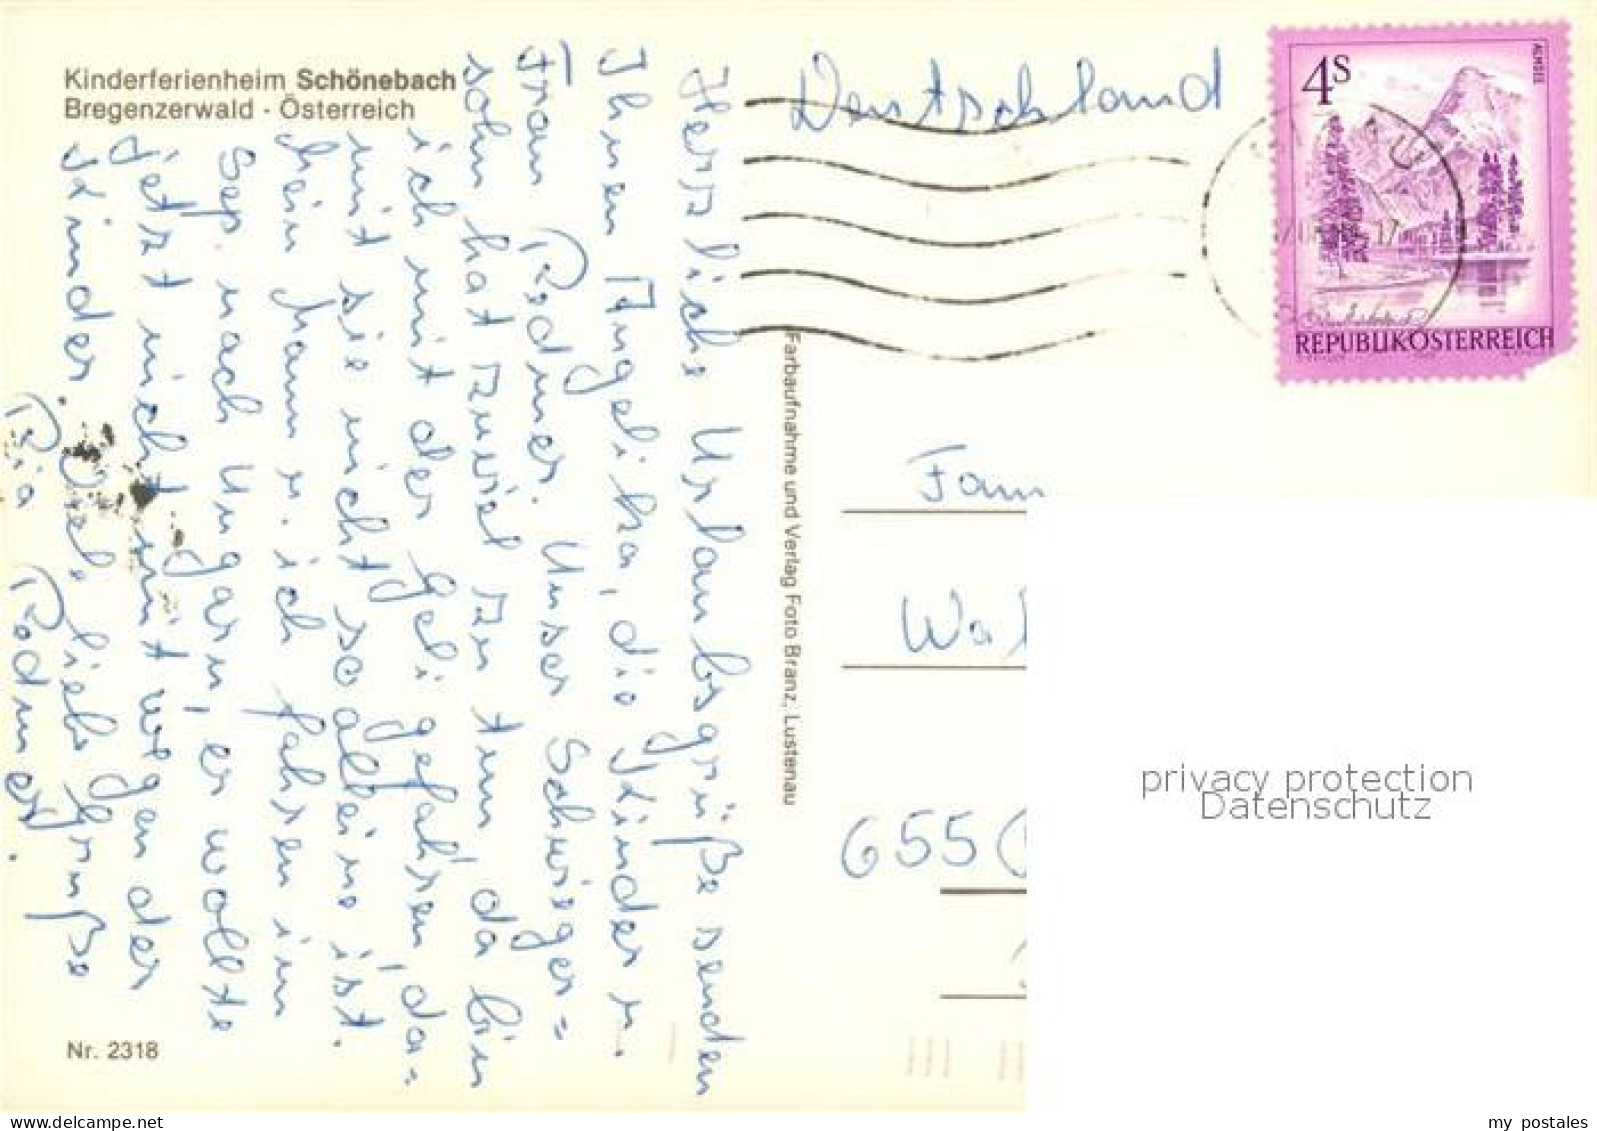 Kinderferienheim Schönebach
Bregenzerwald · Österreich
Herzliche Urlaubsgrüße senden
Ihnen Angelika, die Kinder u.
Frau Rodmer. Unser Schwieger=
sohn hat zuviel zu tun, da bin
ich mit der Geli gefahren, da=
mit sie nicht so alleine ist.
Mein Mann u. ich fahren im
Sep. nach Ungarn, er wollte
jetzt nicht mit wegen der
Kinder. Viel. liebe Grüße
Ria Rodmer.
Nr. 2318
Farbaufnahme und Verlag Foto Branz, Lustenau
Deutschland
4S
ALMSEE
REPUBLIK ÖSTERREICH
Fam
Wal
655
privacy protection
Datenschutz
www.delcampe.net
my_postales